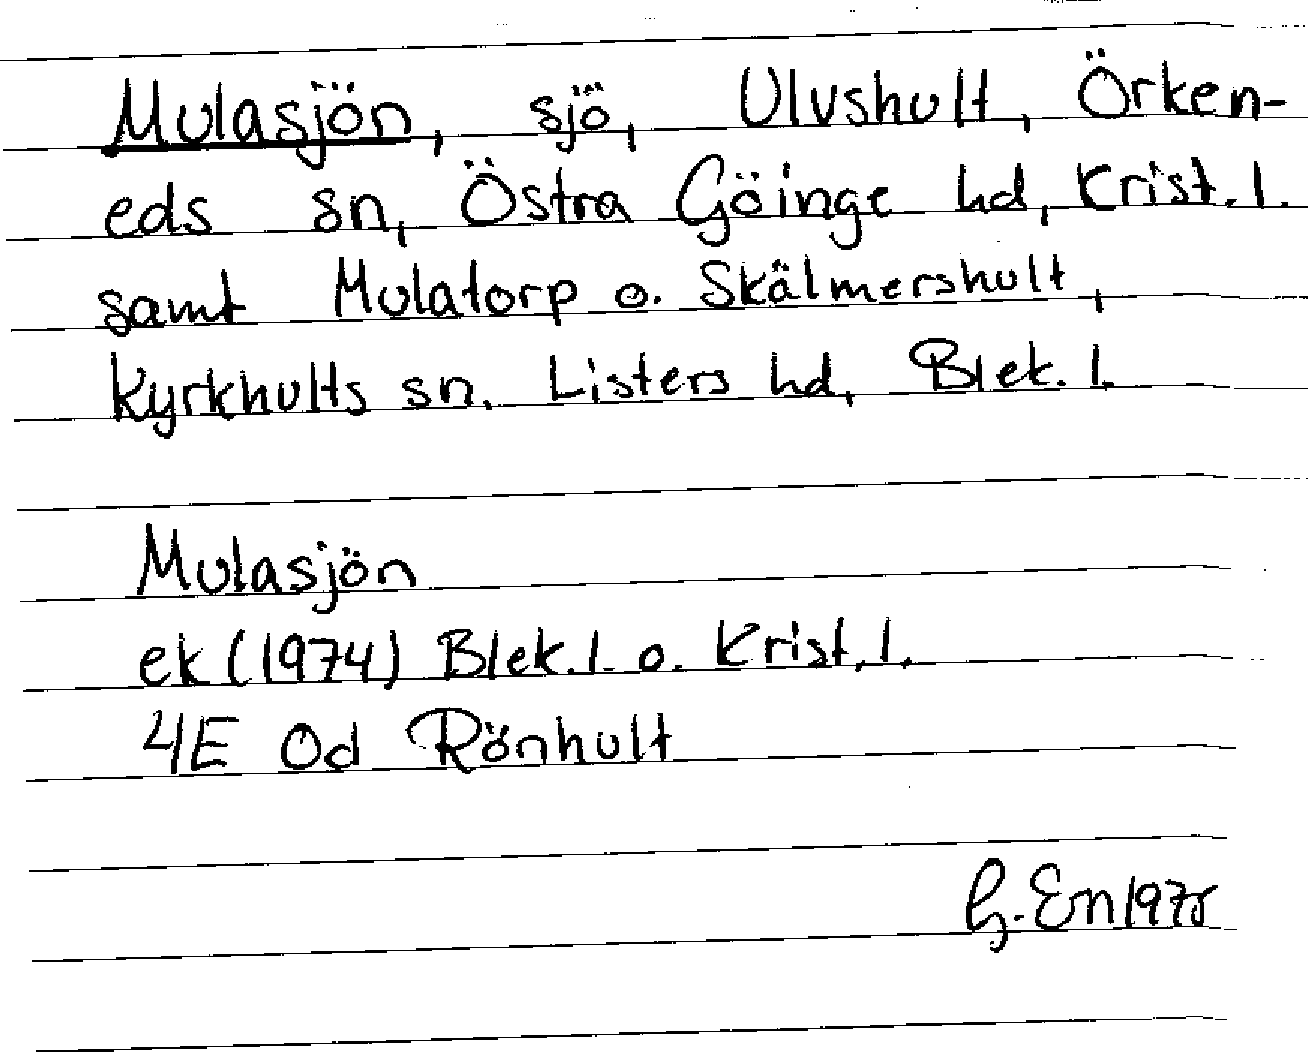 Mulasjön, sjö, Ulvshult, Örken-
eds sn, Östra Göinge hd, Krist. l.
samt Mulatorp o. Skälmershult,
Kyrkhults sn. Listers hd, Blek. l.
Mulasjön
ek (1974) Blek. l. o. Krist. l.
4E Od Rönhult
G. En 1975